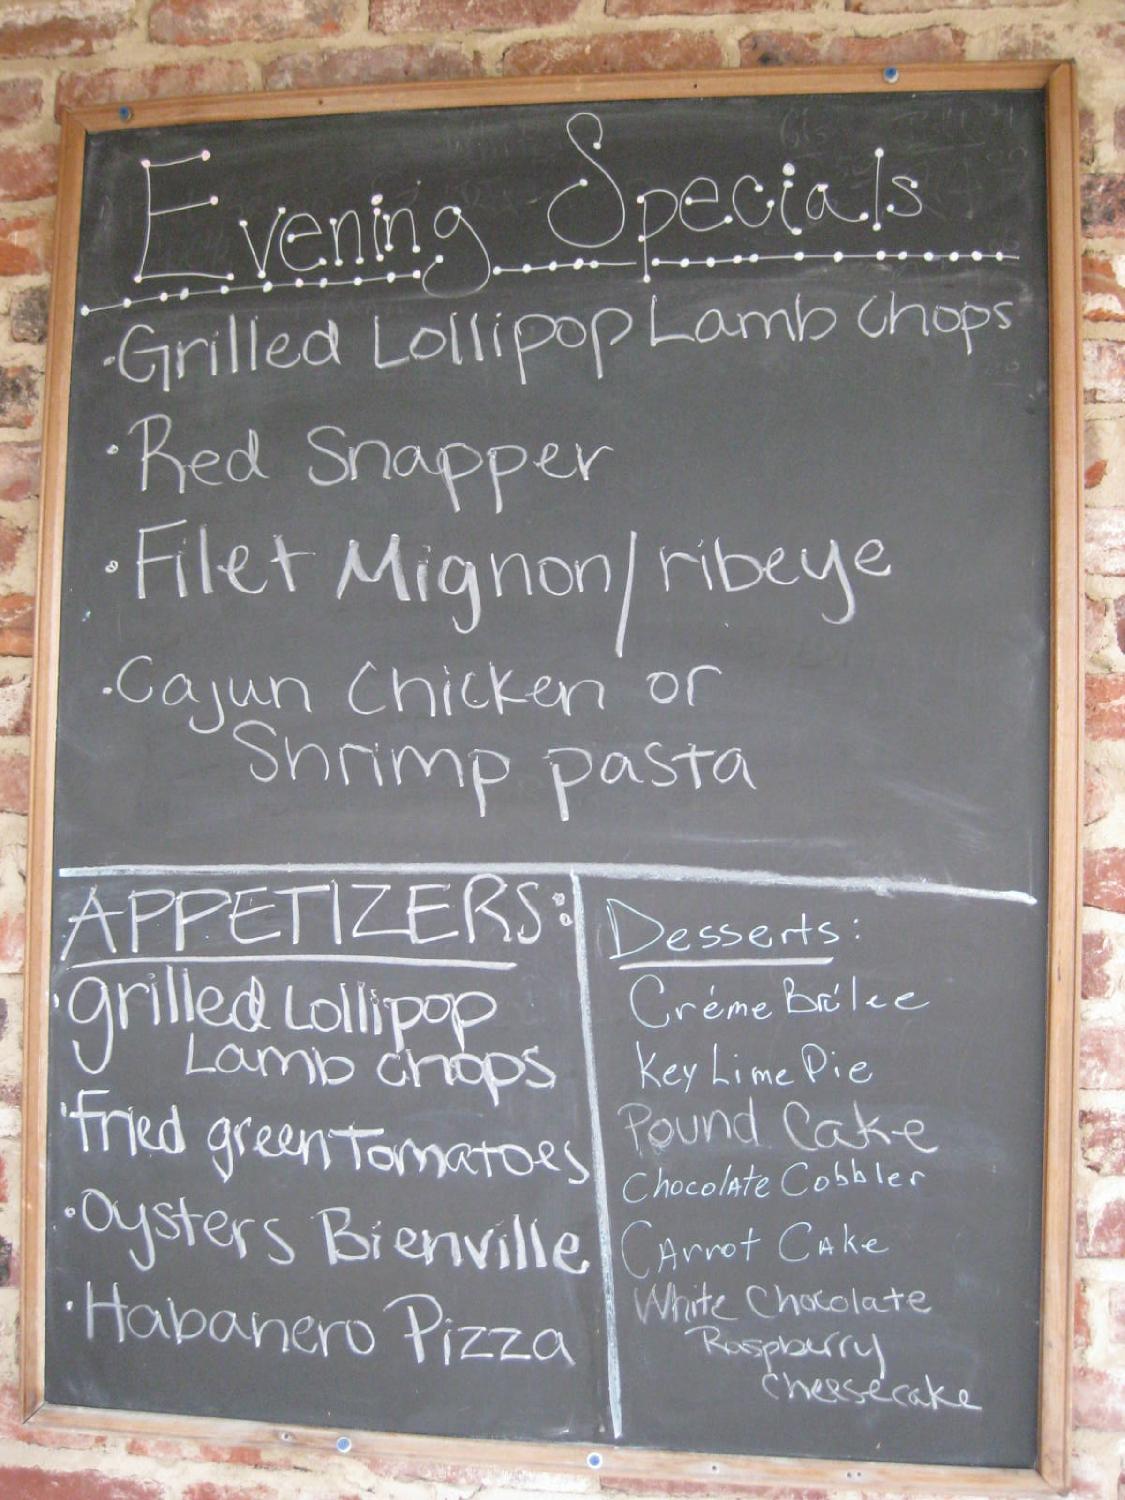 Evening Specials
·Grilled Lollipop Lamb Chops
·Red Snapper
·Filet Mignon/ribeye
·Cajun Chicken or
Shrimp pasta
APPETIZERS:
·grilled Lollipop
Lamb chops
·fried green Tomatoes
·Oysters Bienville
·Habanero Pizza
Desserts:
Créme Brûlee
Key Lime Pie
Pound Cake
Chocolate Cobbler
Carrot Cake
White Chocolate
Raspberry
Cheesecake